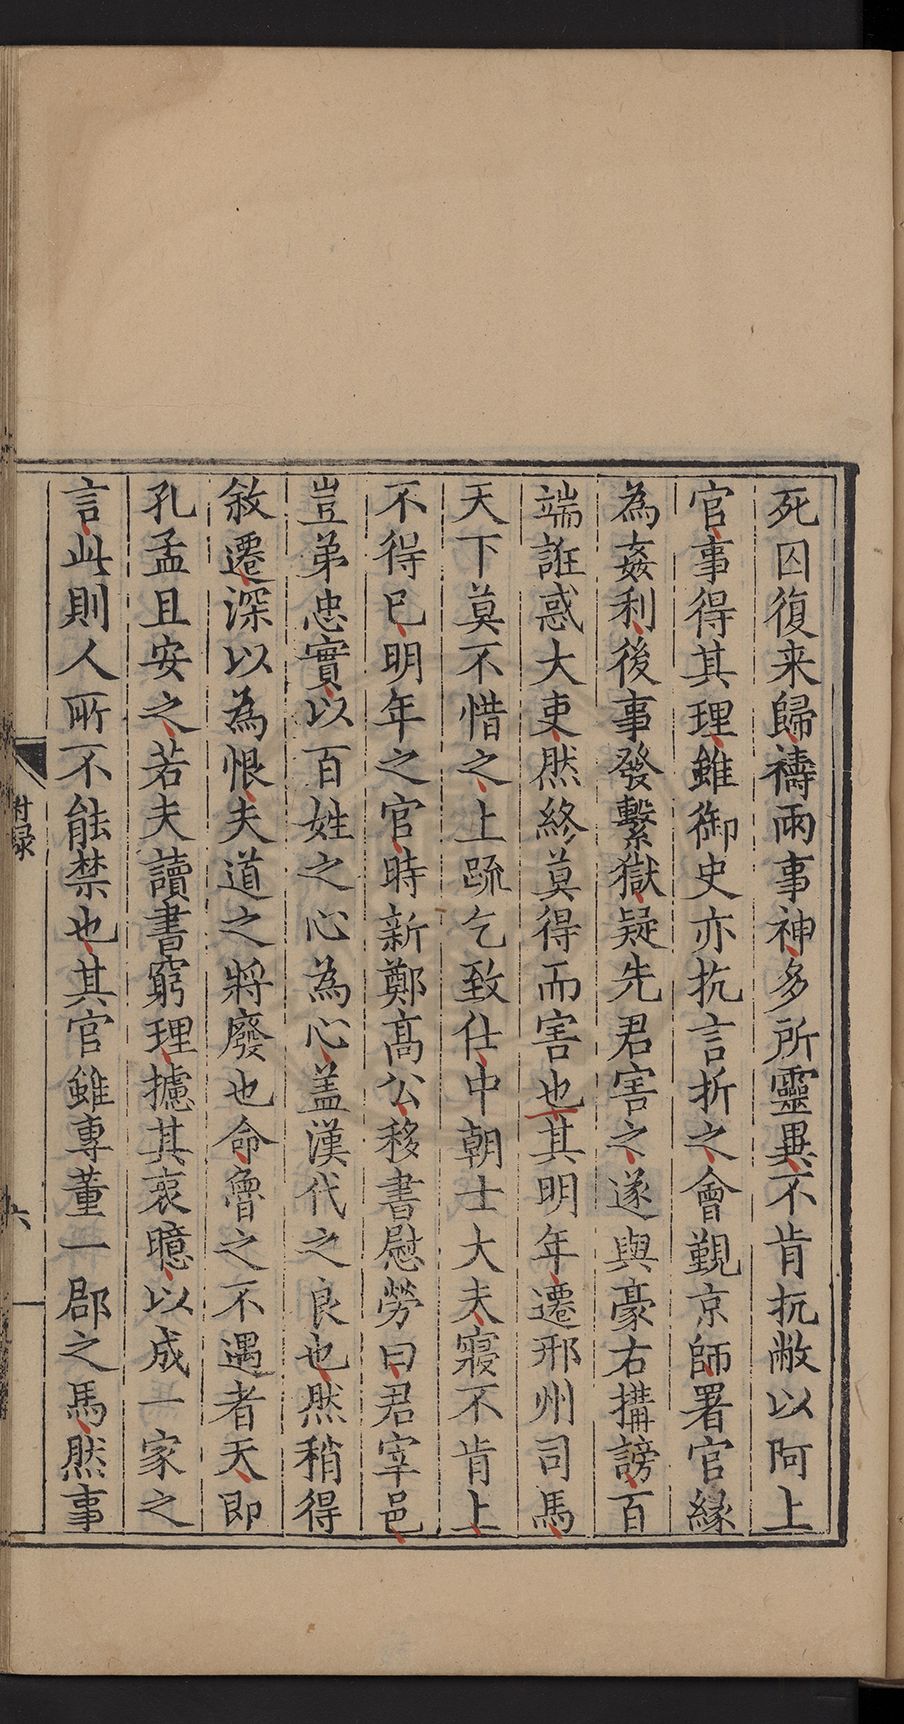 死囚復来歸禱雨事神多所靈異不肯抗敝以阿上
官事得其理雖御史亦抗言折之會覲京師署官縁
為姦利後事發繫獄疑先君害之遂與豪右搆謗百
端誑惑大吏然終莫得而害也其明年遷邢州司馬
天下莫不惜之上疏乞致仕中朝士大夫寢不肯上
不得已明年之官時新鄭髙公移書慰勞曰君宰邑
豈弟忠實以百姓之心為心盖漢代之良也然稍得
敘遷深以為恨夫道之將廢也命魯之不遇者天即
孔孟且安之若夫讀書窮理攄其衷臆以成一家之
言此則人所不能禁也其官雖專董一郡之馬然事
附録
六